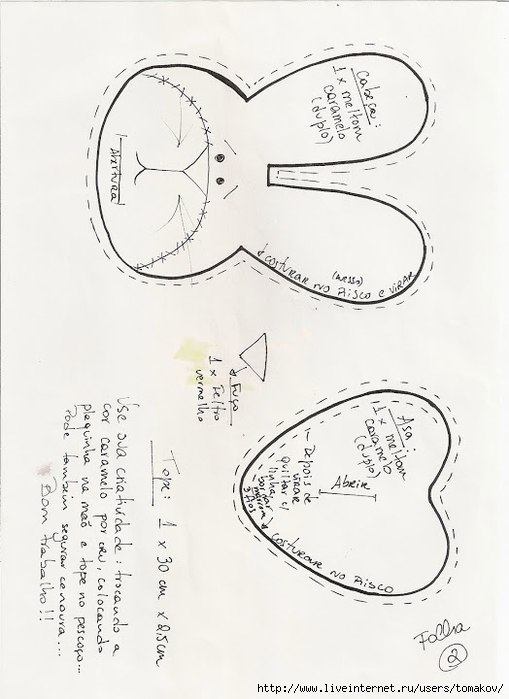 Cabeça:
1 x meltom
caramelo
(duplo)
Abertura
costurar no risco e virar
(avesso)
Fuço
1 x Feltro
vermelho
Asa
1 x meltom
caramelo
(duplo)
Abrir
Depois de
virar
quiltar c/
linha
3 fios
costurar no risco
Tope: 1 x 30 cm x 2,5 cm
Use sua criatividade: trocando a
cor caramelo por cru, colocando
plaquinha na mão e tope no pescoço...
Pode também segurar cenoura...
Bom trabalho!!
Folha
2
http://www.liveinternet.ru/users/tomakov/